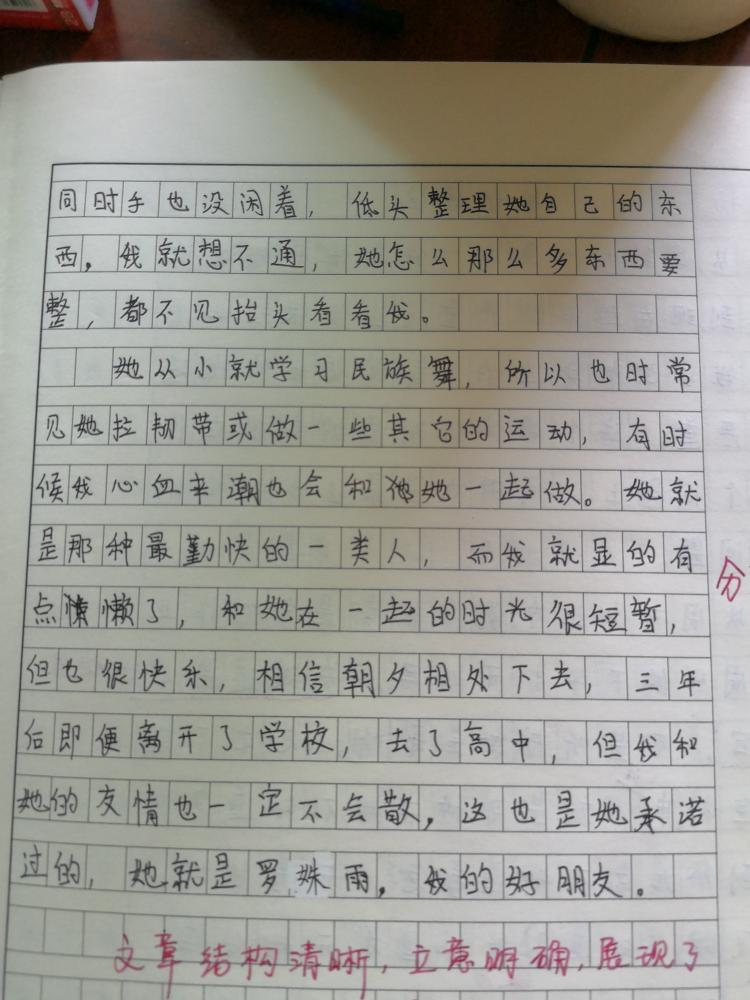 同时手也没闲着，低头整理她自己的东
西，我就想不通，她怎么那么多东西要
整，都不见抬头看看我。
她从小就学习民族舞，所以也时常
见她拉韧带或做一些其它的运动，有时
候我心血来潮也会和她一起做。她就
是那种最勤快的一类人，而我就显的有
点懒了，和她在一起的时光很短暂，
但也很快乐，相信朝夕相处下去，三年
后即便离开了学校，去了高中，但我和
她的友情也一定不会散，这也是她承诺
过的，她就是罗姝雨，我的好朋友。
文章结构清晰，立意明确，展现了
分